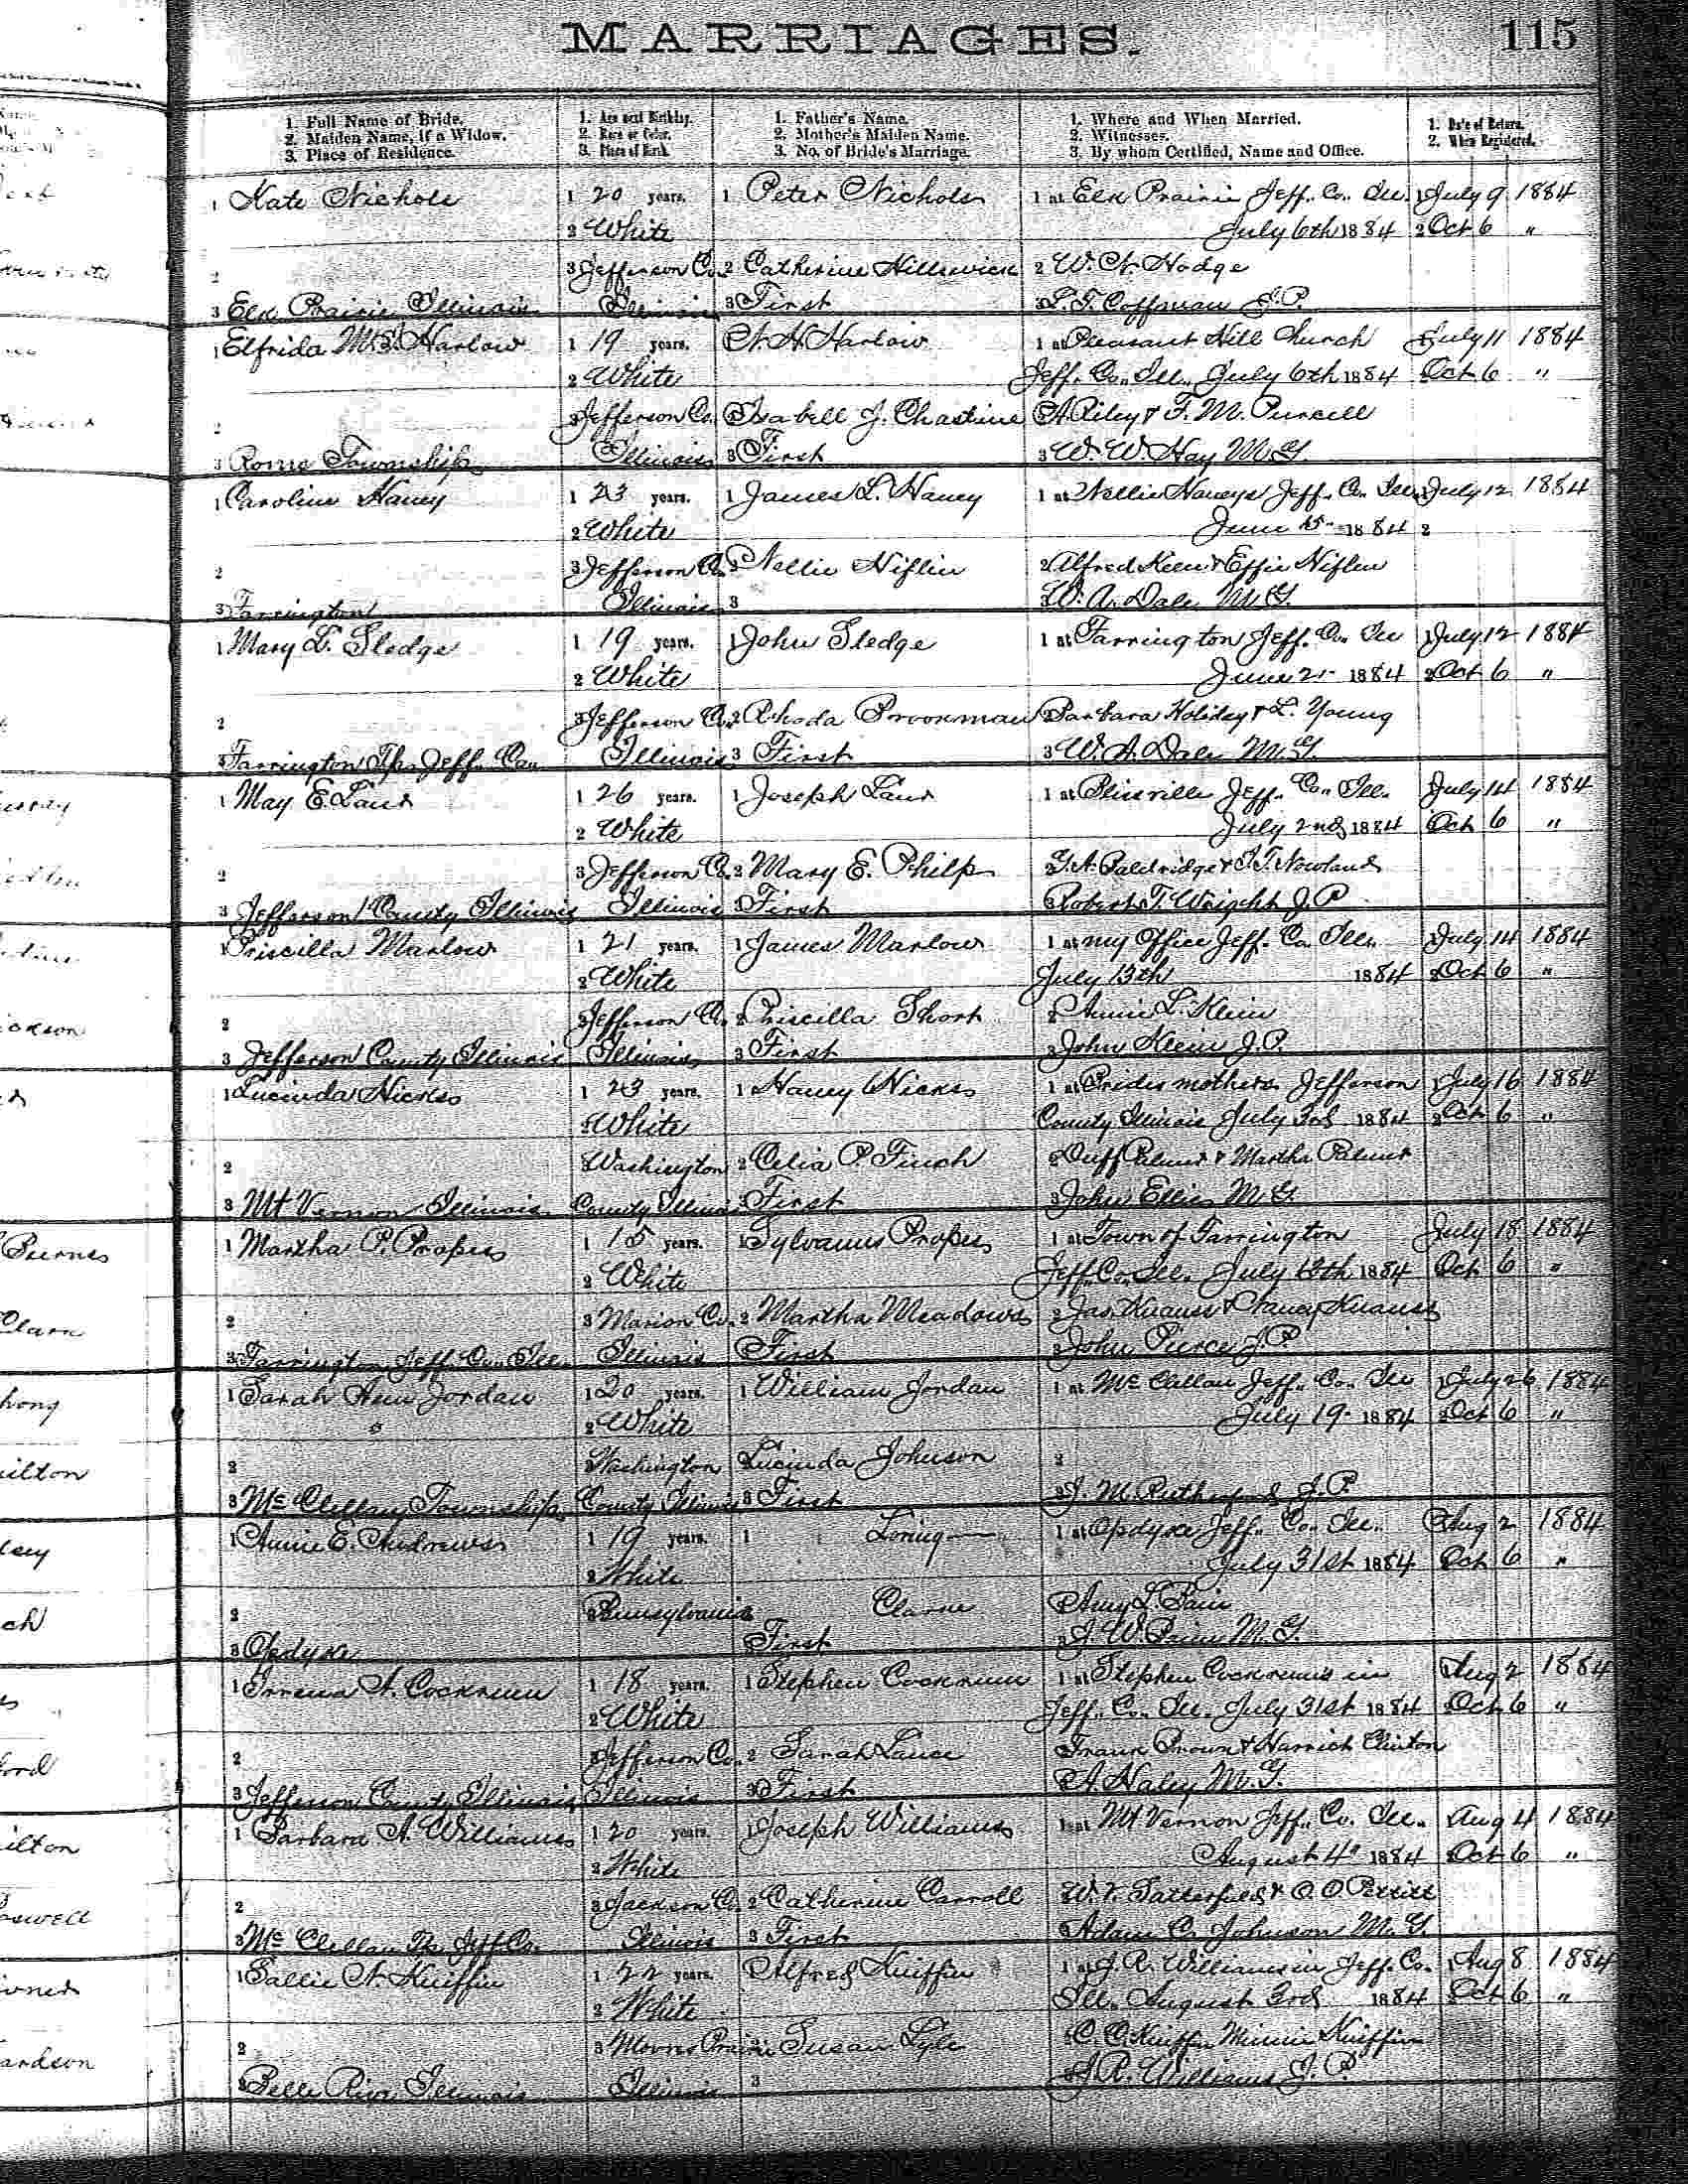 MARRIAGES.
115
1. Full Name of Bride.
2. Maiden Name, if a Widow.
3. Place of Residence.
1. Age next Birthday.
2. Race or Color.
3. Place of Birth.
1. Father's Name.
2. Mother's Maiden Name.
3. No. of Bride's Marriage.
1. Where and When Married.
2. Witnesses.
3. By whom Certified, Name and Office.
1. Date of Return.
2. When Registered.
1 Kate Nichols 1 20 years. 1 Peter Nichols 1 at Elk Prairie Jeff. Co. Ill. 1 July 9 1884
2 White July 6th 1884 2 Oct 6 "
2 3 Jefferson Co. 2 Catherine 2 W. A. Hodge
3 Elk Prairie Illinois Illinois 3 First 3 J.P.
1 Elfrida Harlow 1 19 years. Harlow 1 at Pleasant Hill Church July 11 1884
2 White Jeff. Co. Ill. July 6th 1884 Oct 6 "
2 3 Jefferson Co. Isabell J. Chastine A. Riley & F. M. Purcell
3 Rome Township Illinois 3 First 3 W. W. Hay M.G.
1 Caroline Haney 1 23 years. 1 James L. Haney 1 at Nellie Haneys Jeff. Co. Ill. July 12 1884
2 White June 1884 2
2 3 Jefferson Co. 2 Nellie Hiflin 2 Alfred Keen & Effie Hiflin
3 Farrington Illinois 3 W. A. Dale M.G.
1 Mary L. Sledge 1 19 years. 1 John Sledge 1 at Farrington Jeff. Co. Ill 1 July 12 1884
2 White June 21 1884 2 Oct 6 "
2 3 Jefferson Co. 2 Rhoda 2 Barbara Holiday & L. Young
3 Farrington Tp. Jeff. Co. Illinois 3 First 3 W. A. Dale M.G.
1 May E. 1 26 years. 1 Joseph 1 at Jeff. Co. Ill. July 14 1884
2 White July 2nd 1884 Oct 6 "
2 3 Jefferson Co. 2 Mary E. Philp 2 & J. T. Newland
3 Jefferson County Illinois Illinois First Robert T. Wright J.P.
1 Priscilla Marlow 1 21 years. 1 James Marlow 1 at my Office Jeff. Co. Ill. July 14 1884
2 White July 13th 1884 2 Oct 6 "
2 3 Jefferson Co. 2 Priscilla Short 2 Annie L. Klein
3 Jefferson County Illinois Illinois 3 First 3 John Klein J.P.
1 Lucinda Hicks 1 23 years. 1 Hicks 1 at Brides mothers Jefferson 1 July 16 1884
2 White County Illinois July 3rd 1884 2 Oct 6 "
2 3 Washington 2 Celia P. Finch 2 Duff Palmer & Martha Palmer
3 Mt Vernon Illinois County Illinois 3 First 3 John Ellis M.G.
1 Martha P. Propes 1 15 years. 1 Sylvanus Propes 1 at Town of Farrington July 18 1884
2 White Jeff. Co. Ill. July 13th 1884 Oct 6 "
2 3 Marion Co. 2 Martha Meadows 2 Jas. Knauss & Knauss
3 Farrington Jeff. Co. Ill. Illinois First 3 John Pierce J.P.
1 Sarah Ann Jordan 1 20 years. 1 William Jordan 1 at McClellan Jeff. Co. Ill 1 July 26 1884
2 White July 19 1884 2 Oct 6 "
2 3 Washington Lucinda Johnson 2
3 McClellan Township County Illinois 3 First 3 J. M. Rutherford J.P.
1 Annie E. Andrews 1 19 years. 1 1 at Opdyke Jeff. Co. Ill. Aug 2 1884
2 White July 31st 1884 Oct 6 "
2 3 Pennsylvania Amy L.
3 Opdyke First 3 J. W. M.G.
1 A. Cockrum 1 18 years. 1 Stephen Cockrum 1 at Stephen Cockrums in Aug 2 1884
2 White Jeff. Co. Ill. July 31st 1884 Oct 6 "
2 3 Jefferson Co. 2 Sarah Lance Frank Brown & Clinton
3 Jefferson County Illinois Illinois 3 First A. Haley M.G.
1 Barbara A. Williams 1 20 years. 1 Joseph Williams 1 at Mt Vernon Jeff. Co. Ill. Aug 4 1884
2 White August 4 1884 Oct 6 "
2 3 Jackson Co. 2 Catherine Carroll W. T. Satterfield &
3 McClellan Tp. Jeff Co. Illinois 3 First Adam C. Johnson M.G.
1 Sallie A. Kniffin 1 22 years. Alfred Kniffin 1 at J. R. Williams in Jeff. Co. 1 Aug 8 1884
2 White Ill. August 3rd 1884 Oct 6 "
2 3 Moores Prairie Susan Lyle Kniffin Minnie Kniffin
3 Belle River Illinois Illinois 3 J. R. Williams J.P.